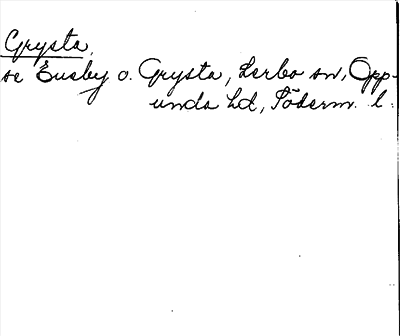 Grysta,
se Eneby o. Grysta, Lerbo sn, Opp-
unda hd, Söderm. l.